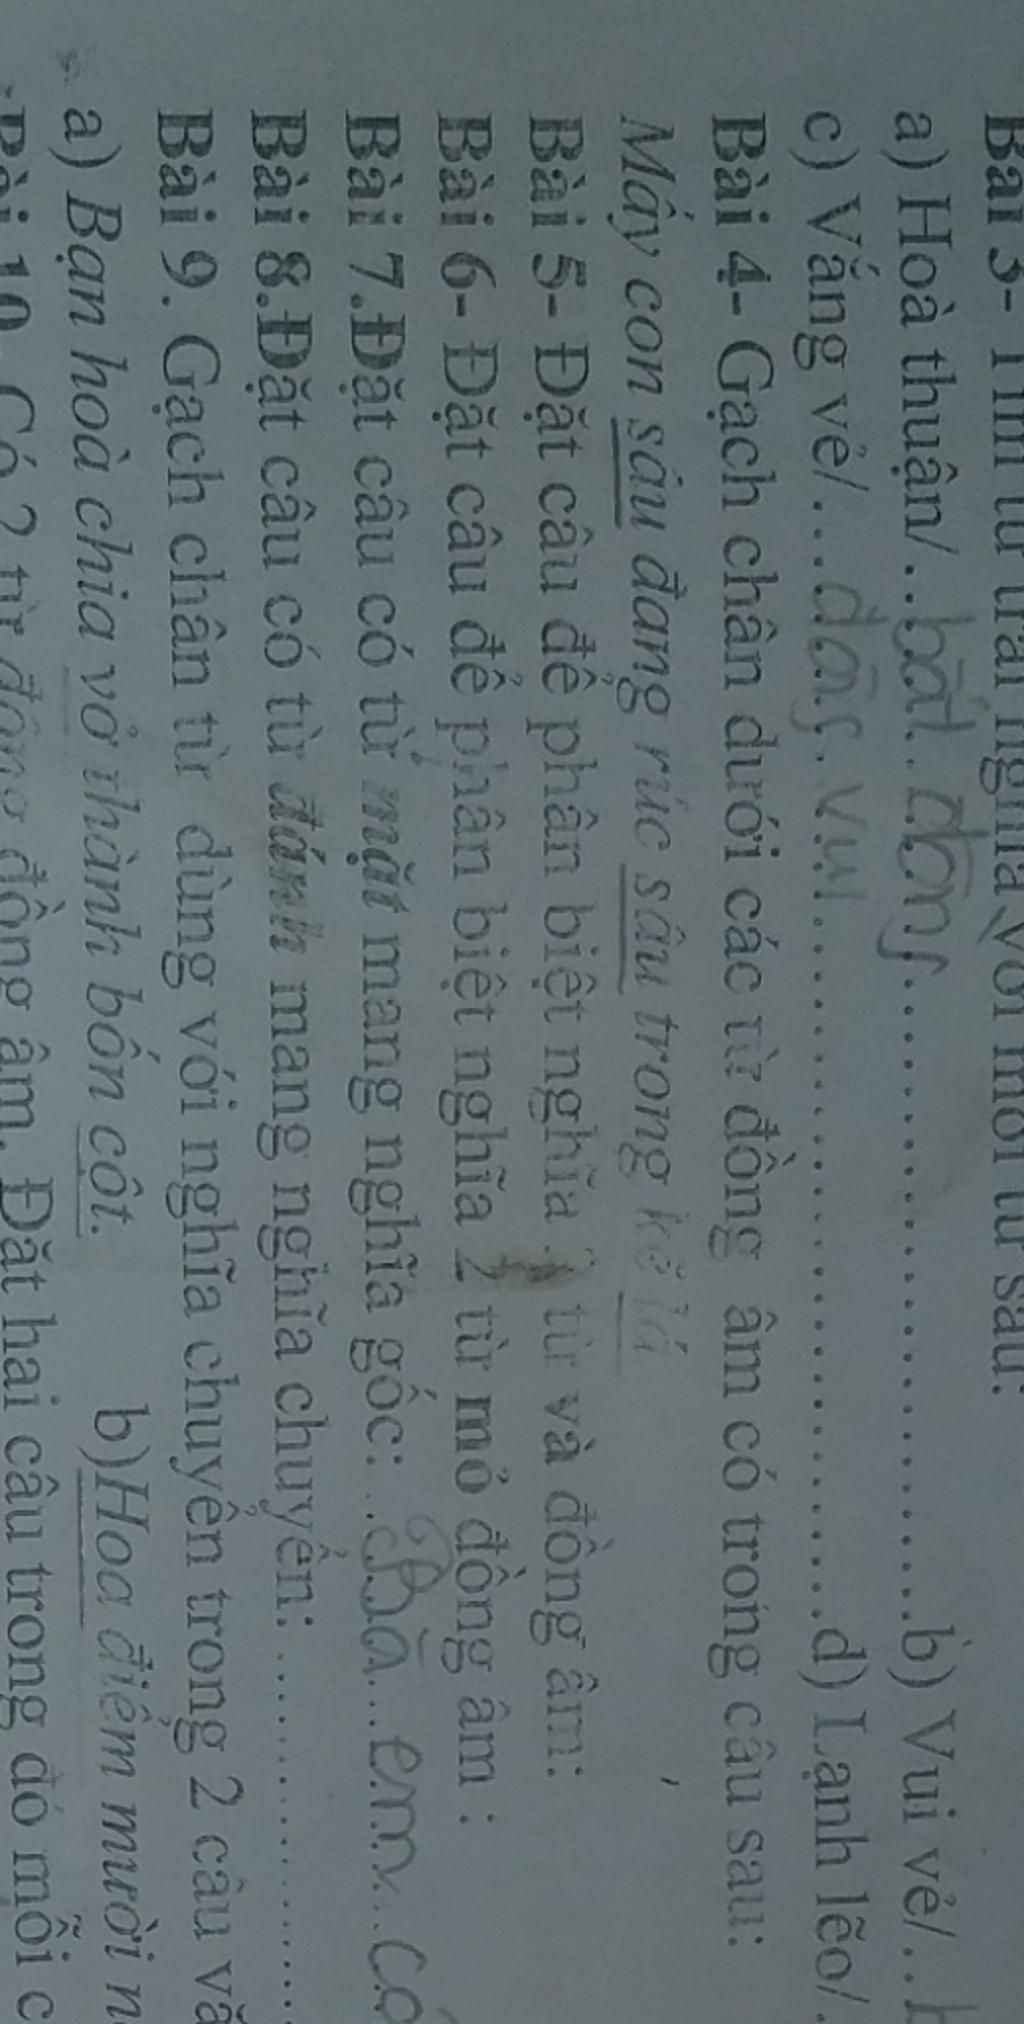 Bài 3- Tìm từ trái nghĩa với mỗi từ sau:
a) Hoà thuận/..bất. đồng.......................b) Vui vẻ/..
c) Vắng vẻ/...đông. vui.......................d) Lạnh lẽo/.
Bài 4- Gạch chân dưới các từ đồng âm có trong câu sau:
Mấy con sâu đang rúc sâu trong kẽ lá
Bài 5- Đặt câu để phân biệt nghĩa 2 từ và đồng âm:
Bài 6- Đặt câu để phân biệt nghĩa 2 từ mỏ đồng âm :
Bài 7.Đặt câu có từ mặt mang nghĩa gốc: ..Bà...em...có
Bài 8.Đặt câu có từ đánh mang nghĩa chuyển: ................
Bài 9. Gạch chân từ dùng với nghĩa chuyển trong 2 câu
a) Bạn hoà chia vở thành bốn cột. b)Hoa điểm mười
Bài 10. Có 2 từ đông đồng âm. Đặt hai câu trong đó mỗi